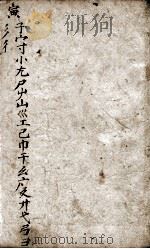 寅 子宀寸小尢尸屮山巛工己巾干幺广廴廾弋弓彐
彡彳